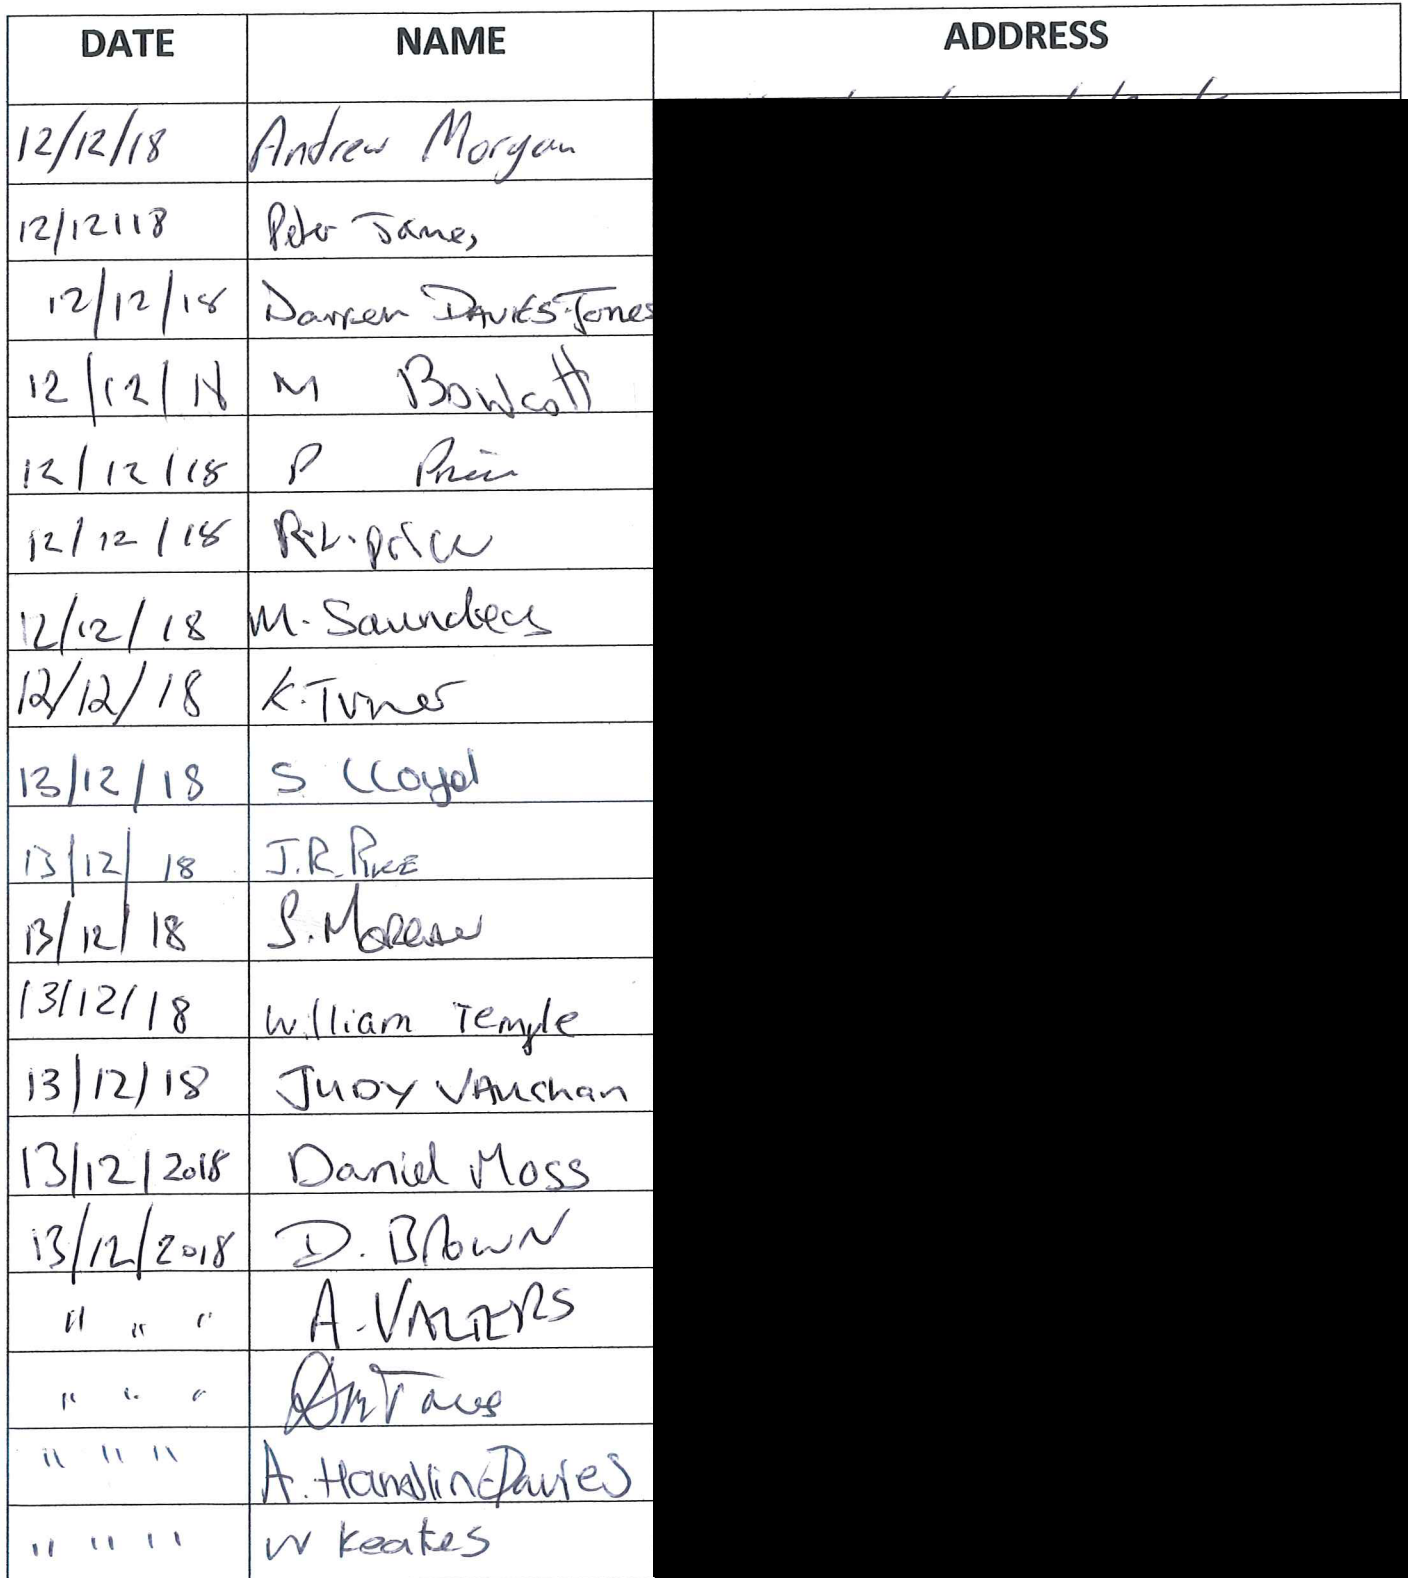 DATE NAME ADDRESS
12/12/18 Andrew Morgan
12/12/18 Peter James
12/12/18 Darren DAVIES-Jones
12/12/18 M Bowcott
12/12/18 P
12/12/18 R.L. price
12/12/18 M. Saunders
12/12/18 K. Turner
13/12/18 S Lloyd
13/12/18 J.R.
13/12/18 S. MORGAN
13/12/18 William Temple
13/12/18 JUDY VAUGhan
13/12/2018 Daniel Moss
13/12/2018 D. BROWN
" " " A.
" " "
" " " A. Hamblin-Davies
" " " W Keates